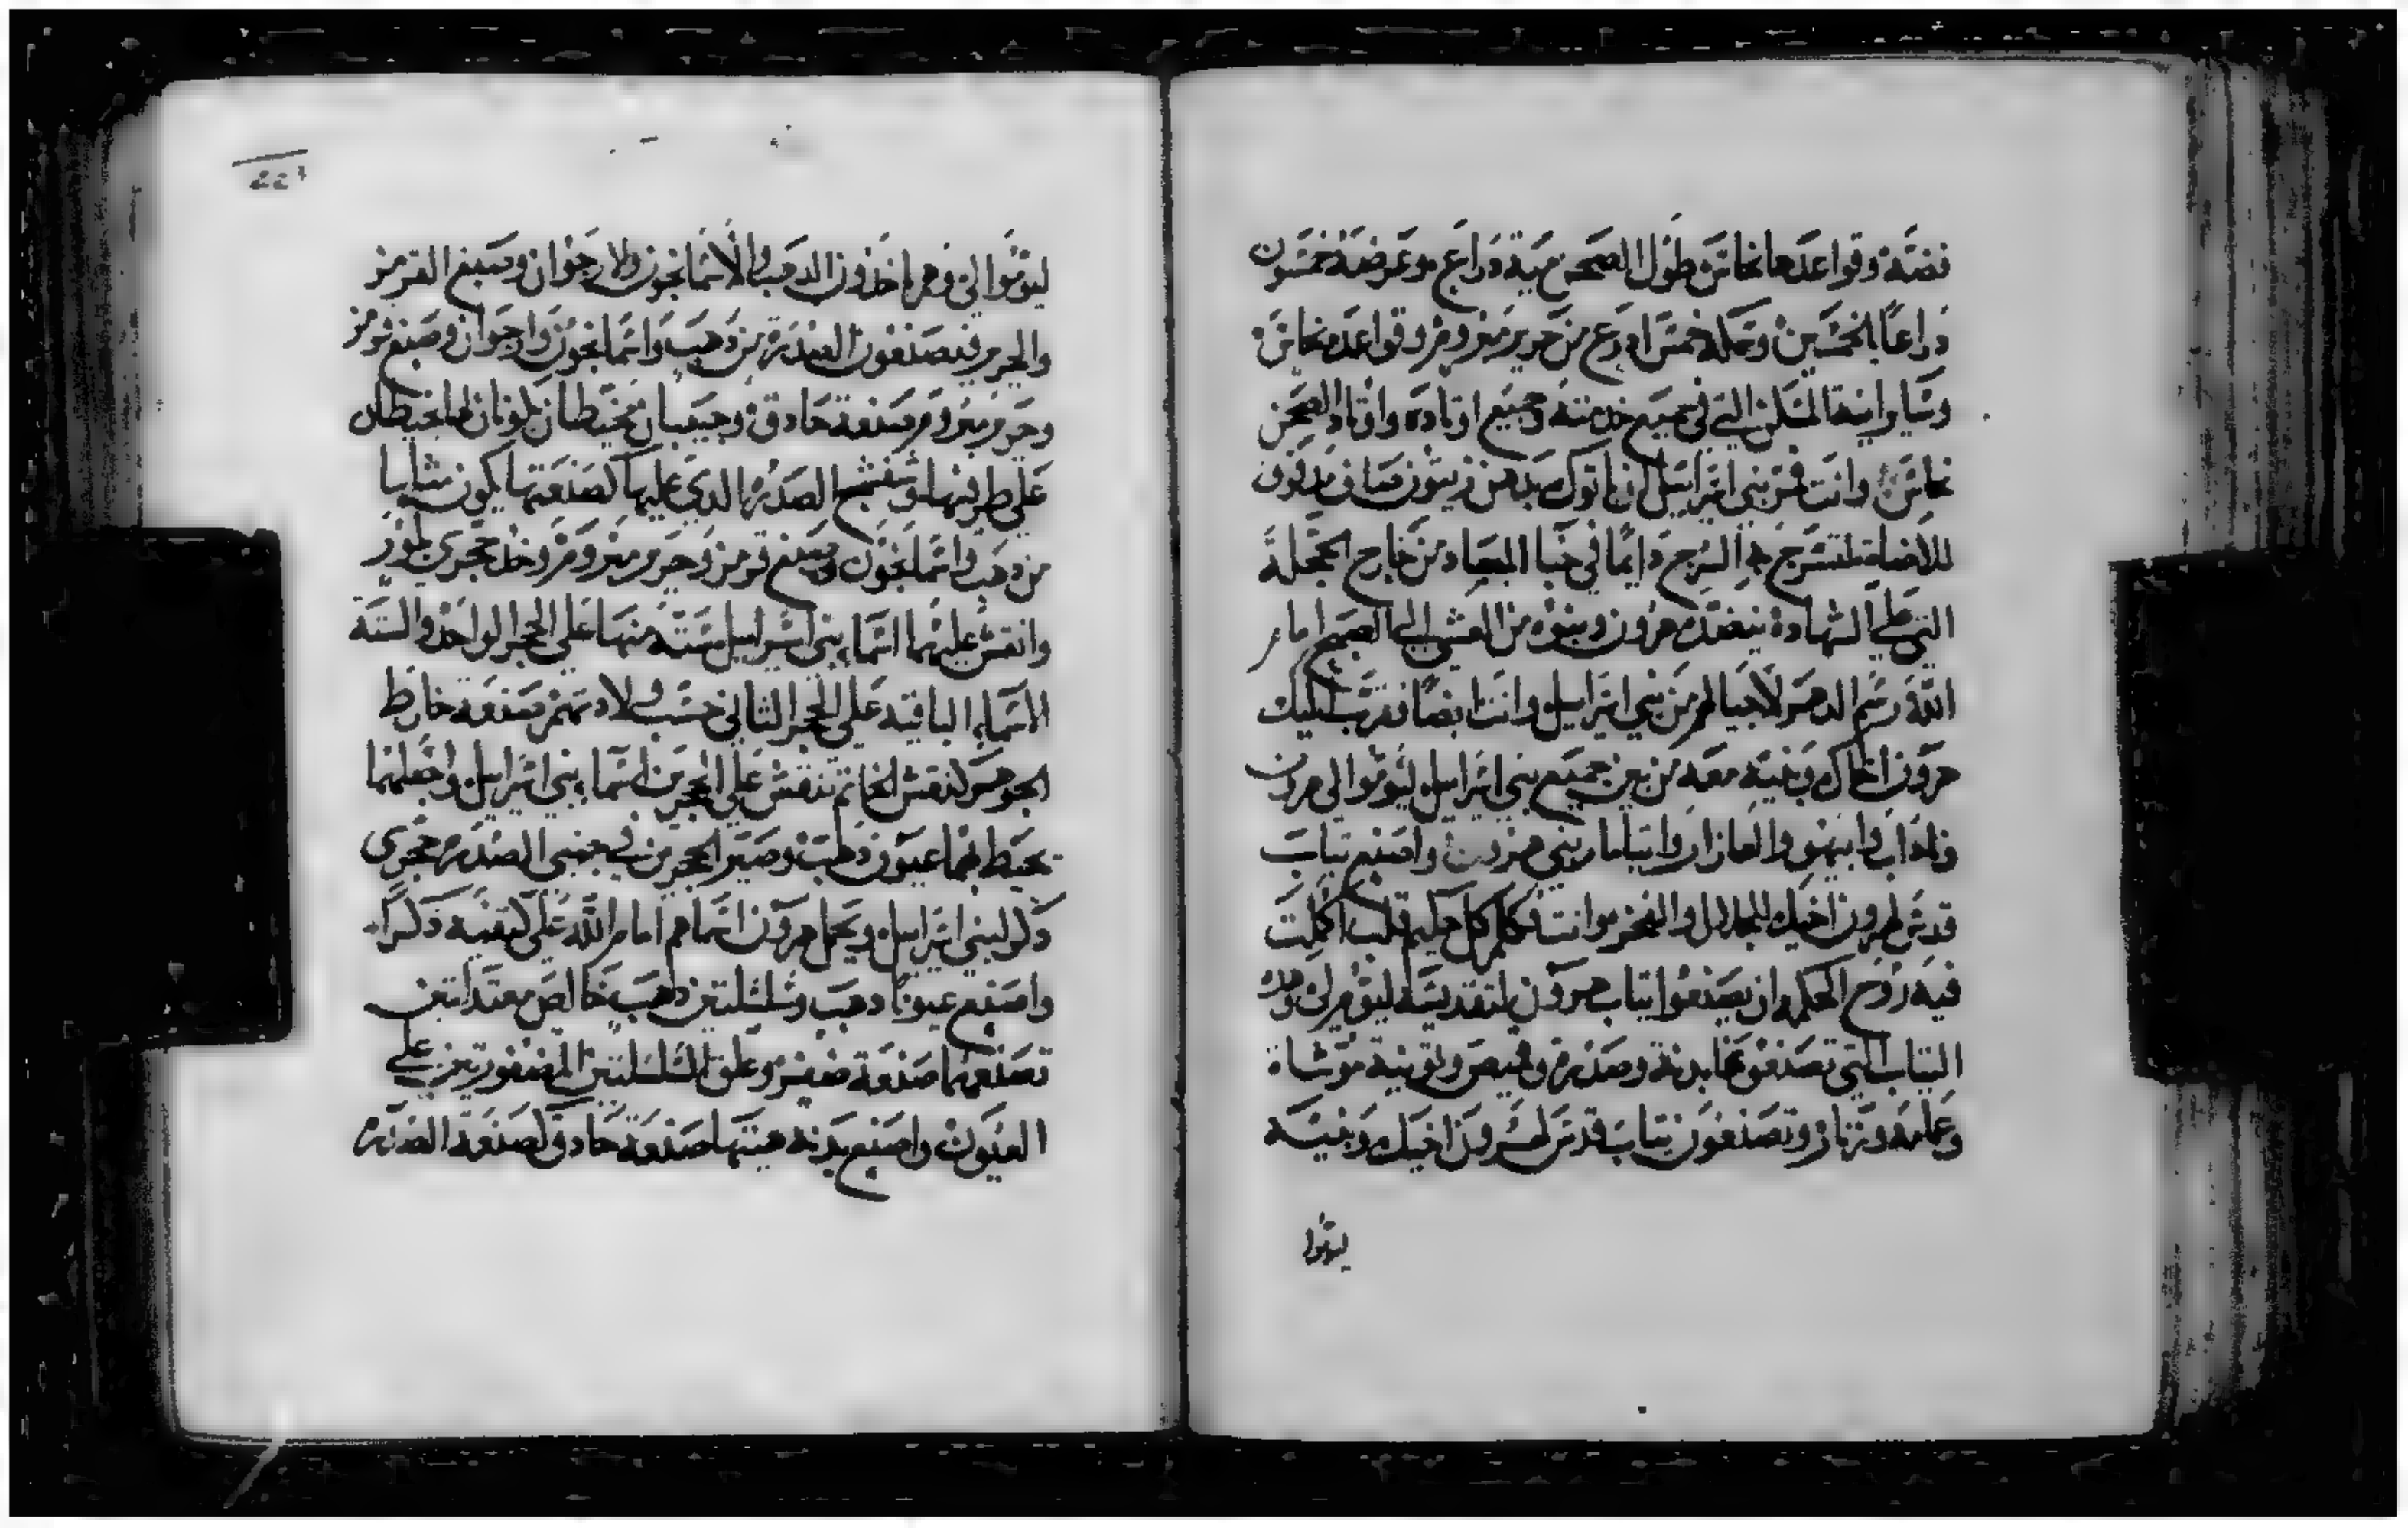 فضته وقواعدها نحاس طول الصحن مية دراع وعرضه خمسون
دراعا بالخمسين وسمكه خمس ادرع من حرير مبروم وقواعده نحاس
وساير انية المسكن التي في جميع خدمته وجميع اوتاده واوتاد الصحن
نحاس وانت فمر بني اسراييل ان ياتوك بدهن زيتون صاف مدقوق
للاضاة لتسرج به السرج دايما في خبا الميعاد من خارج الحجلة
التي على الشهادة ينضده هرون وبنوه من العشي الى الصبح امام
الله رسم الدهر لاجيالهم من بني اسراييل وانت ايضا فقرب اليك
هرون اخاك وبنيه معه من بين جميع بني اسراييل ليوموا لي هرون
وناداب وابيهو والعازار وايتامار بني هرون واصنع تياب
قدس لهرون اخيك للجلال والفخر وانت فكلم كل حكيم قلب اكملت
فيه روح الحكمه ان يصنعوا تياب هرون لتقديسه ليوم لي وهذه
التياب التي تصنعونها بدنة وصدرة وقميص وتونية موشاة
وعمامه وزنار وتصنعون تياب قدس لهرون اخيك وبنيه
ليوموا
221
ليوموا لي وهم ياخذون الدهب والاسمانجون والارجوان وصبغ القرمز
والحرير فيصنعون الصدرة من دهب واسمانجون وارجوان وصبغ قرمز
وحرير مبروم صنعة حادق وجيبان مخيطان يكونان لها مخيطان
على طرفيها وشفشج الصدره الدي عليها كصنعتها يكون مثلها
من دهب واسمانجون وصبغ قرمز وحرير مبروم وخد حجري بلور
وانقش عليهما اسماء بني اسراييل ستته منها على الحجر الواحد والسته
الاسماء الباقيه على الحجر الثاني حسب ولادتهم صنعه خارط
الجوهر كنقش الخاتم تنقش على الحجرين اسماء بني اسراييل واجعلهما
يحيط بهما عيون دهب وصير الحجرين في جنبي الصدره حجري
دكر لبني اسراييل ويحمل هرون اسماهم امام الله على كتفيه دكرا
واصنع عيونا دهب وسلسلتين دهب خالص معتدلتين
تصنعهما صنعة ضفير وعلق السلسلتين المضفورتين على
العيون واصنع بدنه هيتها صنعة حادق كصنعة الصدره